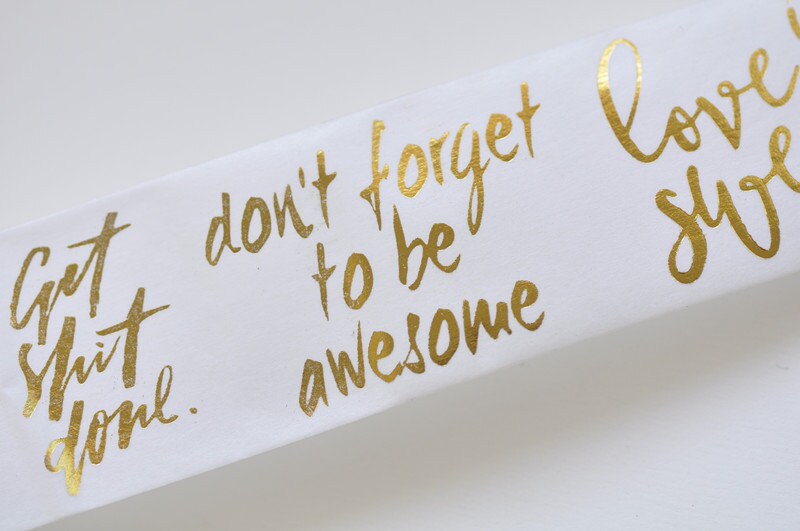 Get
shit
done.
don't forget
to be
awesome
love